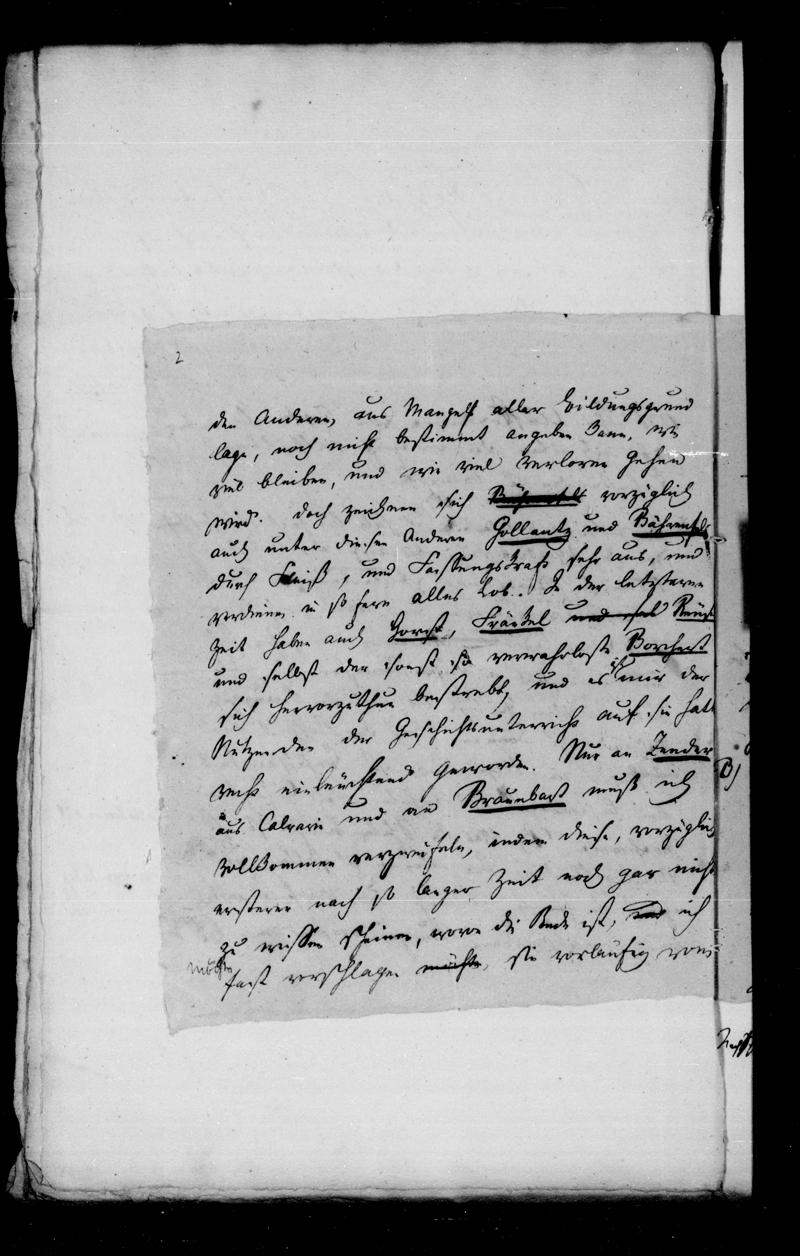 2
den Anderen, aus Mangel aller Bildungsgrund
lage, noch nicht bestimmt angeben kann, wie
viel bleiben, und wie viel verloren gehen
wird. Doch zeichnen sich vorzüglich
auch unter diesen Anderen Gollantz und Bährenfels
durch Fleiß, und Fassungskraft sehr aus, und
verdienen in so fern alles Lob. In der letzteren
Zeit haben auch Fränkel und
und selbst der sonst so verwahrloste Borchert
sich hervorzuthun bestrebt, und es ist mir der
Nutzen den der Geschichtsunterricht auf sie hatte
recht einleuchtend geworden. Nur an Tender
aus Calvarie und an Braunbart muß ich
vollkommen verzweifeln, indem diese, vorzüglich
ersterer nach so langer Zeit noch gar nicht
zu wissen scheinen, wovon die Rede ist, und ich
möchte
fast vorschlagen möchte, sie vorläufig vom
B)